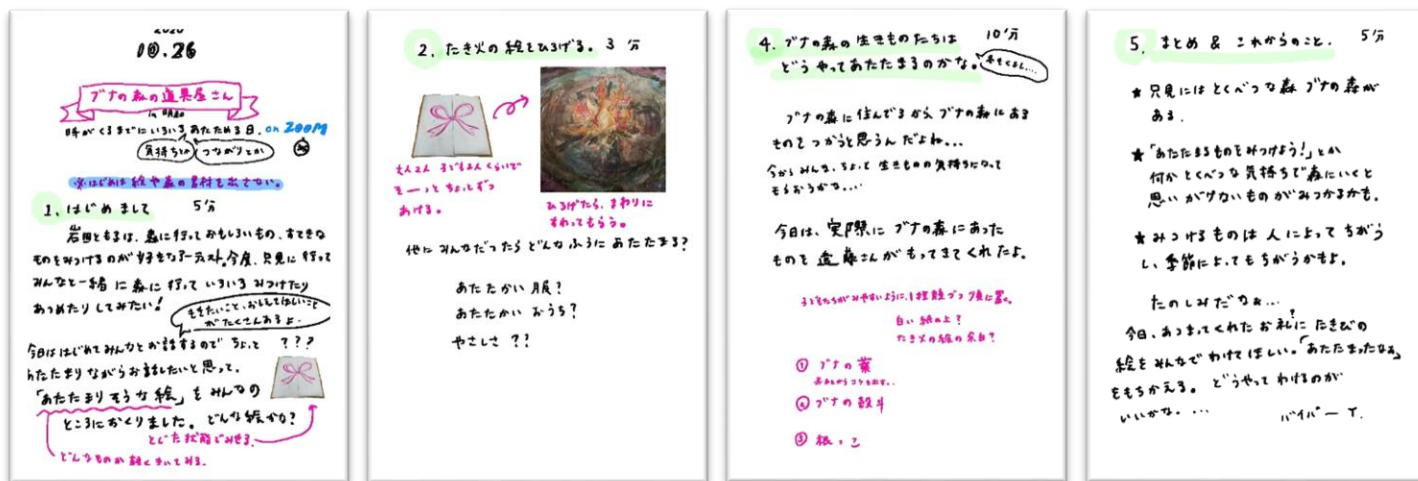 2020
10.26
ブナの森の道具屋さん
in 只見
時がくるまでにいろいろあたためる日. on ZOOM
気持ちとか つながりとか
※はじめは絵や森の素材を出さない。
1. はじめまして 5分
岩田ともは、森に行っておもしろいもの、すてきな
ものをみつけるのが好きなアーティスト。今度、只見に行って
みんなと一緒に森に行って いろいろみつけたり
あつめたりしてみたい!
ききたいこと、おしえてほしいこと
がたくさんあるよ.
今日ははじめてみんなとお話するので ちょっと ???
あたたまりながらお話したいと思って、
「あたたまりそうな絵」をみんなの
ところにおくりました。どんな絵かな?
とじた状態でみせる.
どんなものか軽くきいてみる.
2. たき火の絵をひろげる。 3分
そーっと ちょっとずつ
あける。
ひろげたら、まわりに
すわってもらう。
他にみんなだったら どんなふうに あたたまる?
あたたかい 服?
あたたかい おうち?
やさしさ ??
4. ブナの森の生きものたちは 10分
どうやってあたたまるのかな。
ブナの森に住んでるから、ブナの森にある
ものをつかうと思うんだよね...
今からみんな、ちょっと 生きものの気持ちになって
もらおうかな....
今日は、実際に ブナの森にあった
ものを 遠藤さんが もってきてくれたよ。
子どもたちがみやすいように、1種類ずつ 順に置く。
白い紙の上?
たき火の絵の余白?
① ブナの葉
② ブナの殻斗
③ 根っこ
5. まとめ & これからのこと. 5分
★ 只見には とくべつな森 ブナの森が
ある.
★「あたたまるものをみつけよう!」とか
何か とくべつな 気持ちで森にいくと
思いがけないものが みつかるかも.
★ みつけるものは 人によって ちがう
し、季節によっても ちがうかもよ.
たのしみだなぁ...
今日、あつまってくれた お礼に たきびの
絵をみんなで わけてほしい。「あたたまったなぁ」
をもちかえる。 どうやって わけるのが
いいかな. ...
バイバーイ.